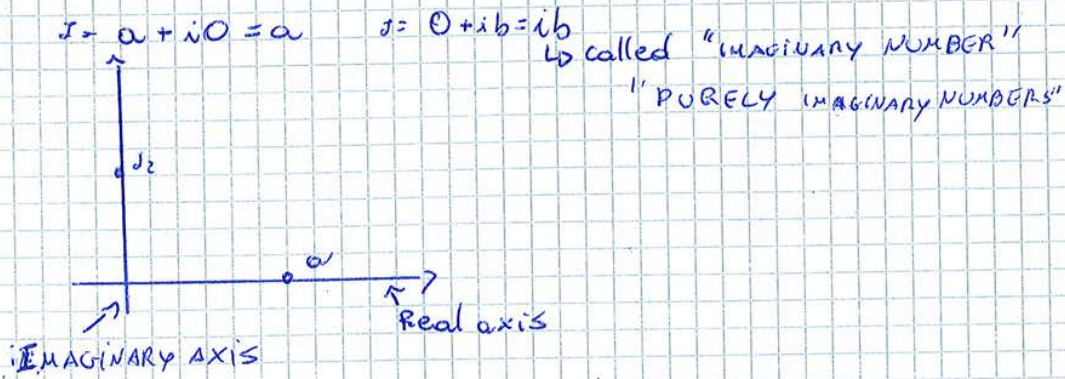 z = a + i0 = a    z = 0 + ib = ib
↳ called "IMAGINARY NUMBER"
"PURELY IMAGINARY NUMBERS"
z2
a
Real axis
IMAGINARY AXIS